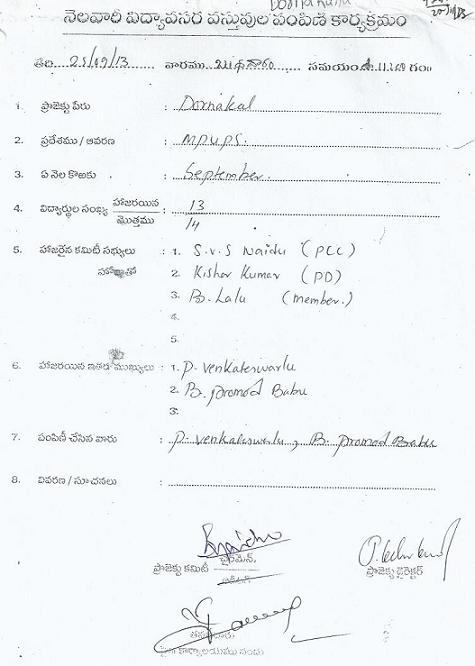 Dornakal
నెలవారీ విద్యావసర వస్తువుల పంపిణీ కార్యక్రమం
తేది 25/09/13 వారము బుధవారం సమయం ఉ. 11.00 గం॥
1. ప్రాజెక్టు పేరు : Dornakal
2. ప్రదేశము / ఆవరణ : MPUPS.
3. ఏ నెల కొఱకు : September.
4. విద్యార్థుల సంఖ్య హాజరయిన / మొత్తము : 13 / 14
5. హాజరైన కమిటీ సభ్యులు : 1. S.V.S Naidu (PCC)
హోదాతో 2. Kishor Kumar (PD)
3. B. Lalu (member.)
4.
5.
6. హాజరయిన ఇతర ముఖ్యులు : 1. P. Venkateswarlu
2. B. promod Babu
3.
7. పంపిణీ చేసిన వారు : P. Venkateswarlu, B. promod Babu
8. వివరణ / సూచనలు :
ఛైర్మెన్,
ప్రాజెక్టు కమిటీ
ప్రాజెక్టు డైరెక్టర్